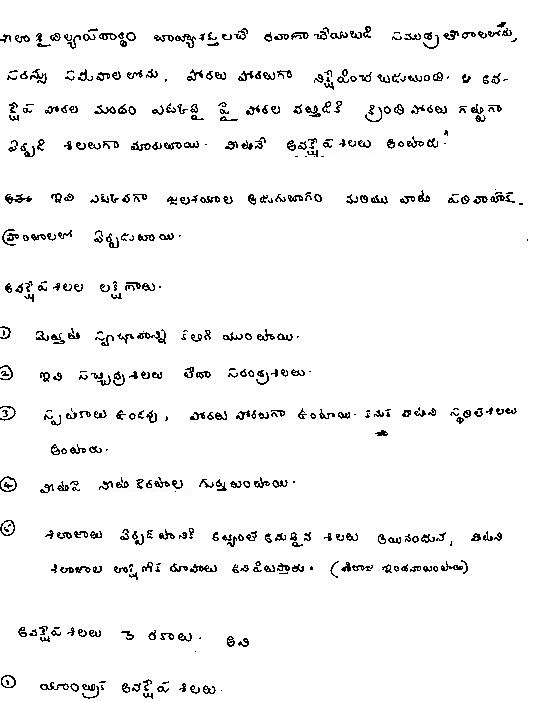 శిలాశైథిల్యపదార్థం బాహ్యశక్తులచే రవాణా చేయబడి సముద్ర తీరాలలోను,
సరస్సు సమీపాలలోను, పొరలు పొరలుగా నిక్షేపించ బడుతుంది. ఈ అవ-
క్షేప పొరల మందం ఎక్కువై పై పొరల వత్తిడికి క్రింది పొరలు గట్టిగా
ఏర్పడి శిలలుగా మారుతాయి. వీటినే అవక్షేప శిలలు అంటారు.
ఇవి ఎక్కువగా జలాశయాల అడుగుభాగం మరియు వాటి పరివాహక
ప్రాంతాలలో ఏర్పడుతాయి.
అవక్షేప శిలల లక్షణాలు.
① మెత్తటి స్వభావాన్ని కలిగి యుంటాయి.
② ఇవి సచ్ఛిద్రశిలలు లేదా సరంధ్రశిలలు.
③ స్పటికాలు ఉండవు, పొరలు పొరలుగా ఉంటాయి. కనుక వీటిని స్థరితశిలలు
అంటారు.
④ వీటిపై నీటి కెరటాల గుర్తులుంటాయి.
⑤ శిలాజాలు ఏర్పడటానికి అత్యంత అనువైన శిలలు అయినందున, వీటిని
శిలాజాల లోహేతర రూపాలు అని పిలుస్తారు. (శిలాజ ఇంధనాలుంటాయి)
అవక్షేప శిలలు 3 రకాలు. అవి
① యాంత్రిక అవక్షేప శిలలు.